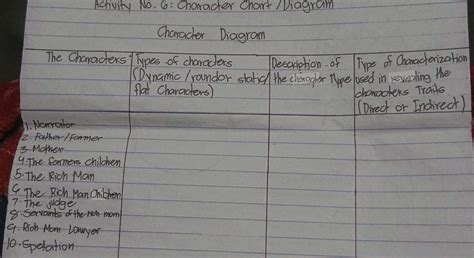 Activity No. 6: Character Chart / Diagram
Character Diagram
The Characters
Types of characters
(Dynamic/round or static/
flat Characters)
Description of
the character type
Type of Characterization
used in revealing the
characters Traits
(Direct or Indirect)
1. Narrator
2. Father/Farmer
3. Mother
4. The farmers children
5. The Rich Man
6. The Rich Man Children
7. The judge
8. Servants of the rich man
9. Rich Man Lawyer
10. Spetation